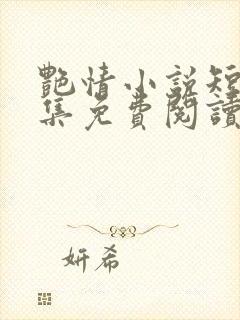 艷情小說短
集免費閱讀
妍希